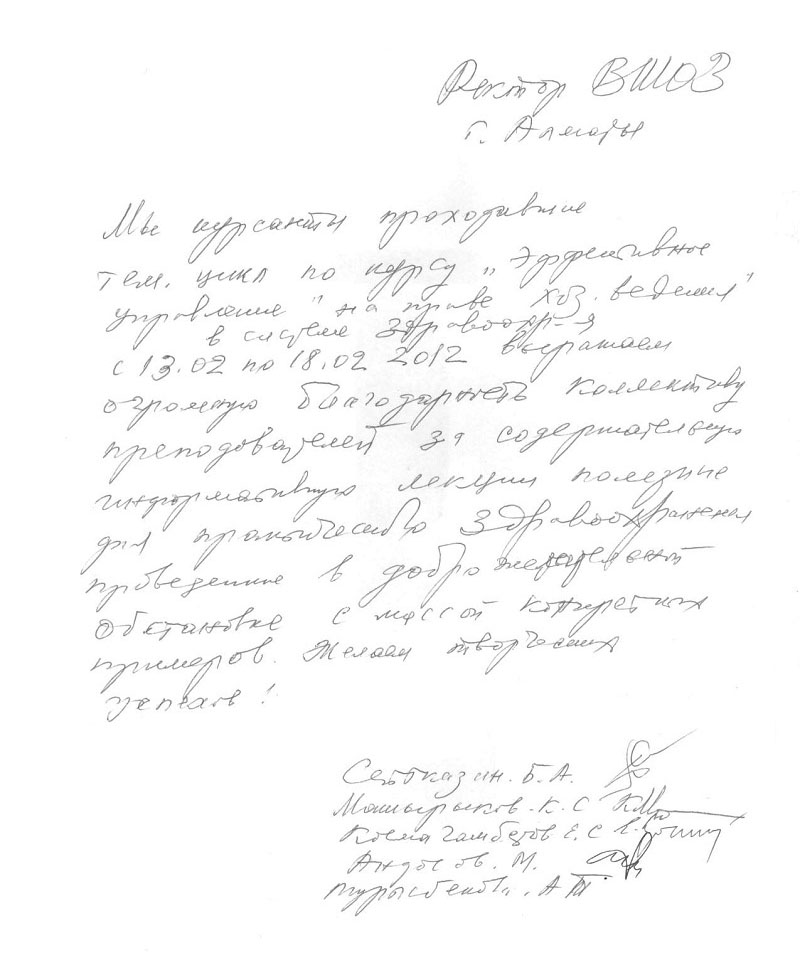 Ректор ВШОЗ
г. Алматы
Мы курсанты проходившие
тем. цикл по курсу „Эффективное
управление" на праве хоз. ведения"
в системе Здравоохр-я
с 13.02 по 18.02 2012 выражаем
огромную благодарность коллективу
преподователей за содержательную
информативную лекции полезные
для практического Здравоохранения
проведенные в доброжелательной
обстановке с массой конкретных
примеров. Желаем творческих
успехов!
Сейтказин. Б.А.
К. С
Кожагамбетов Е. С
Андосов. М.
Турысбекова. А Т.